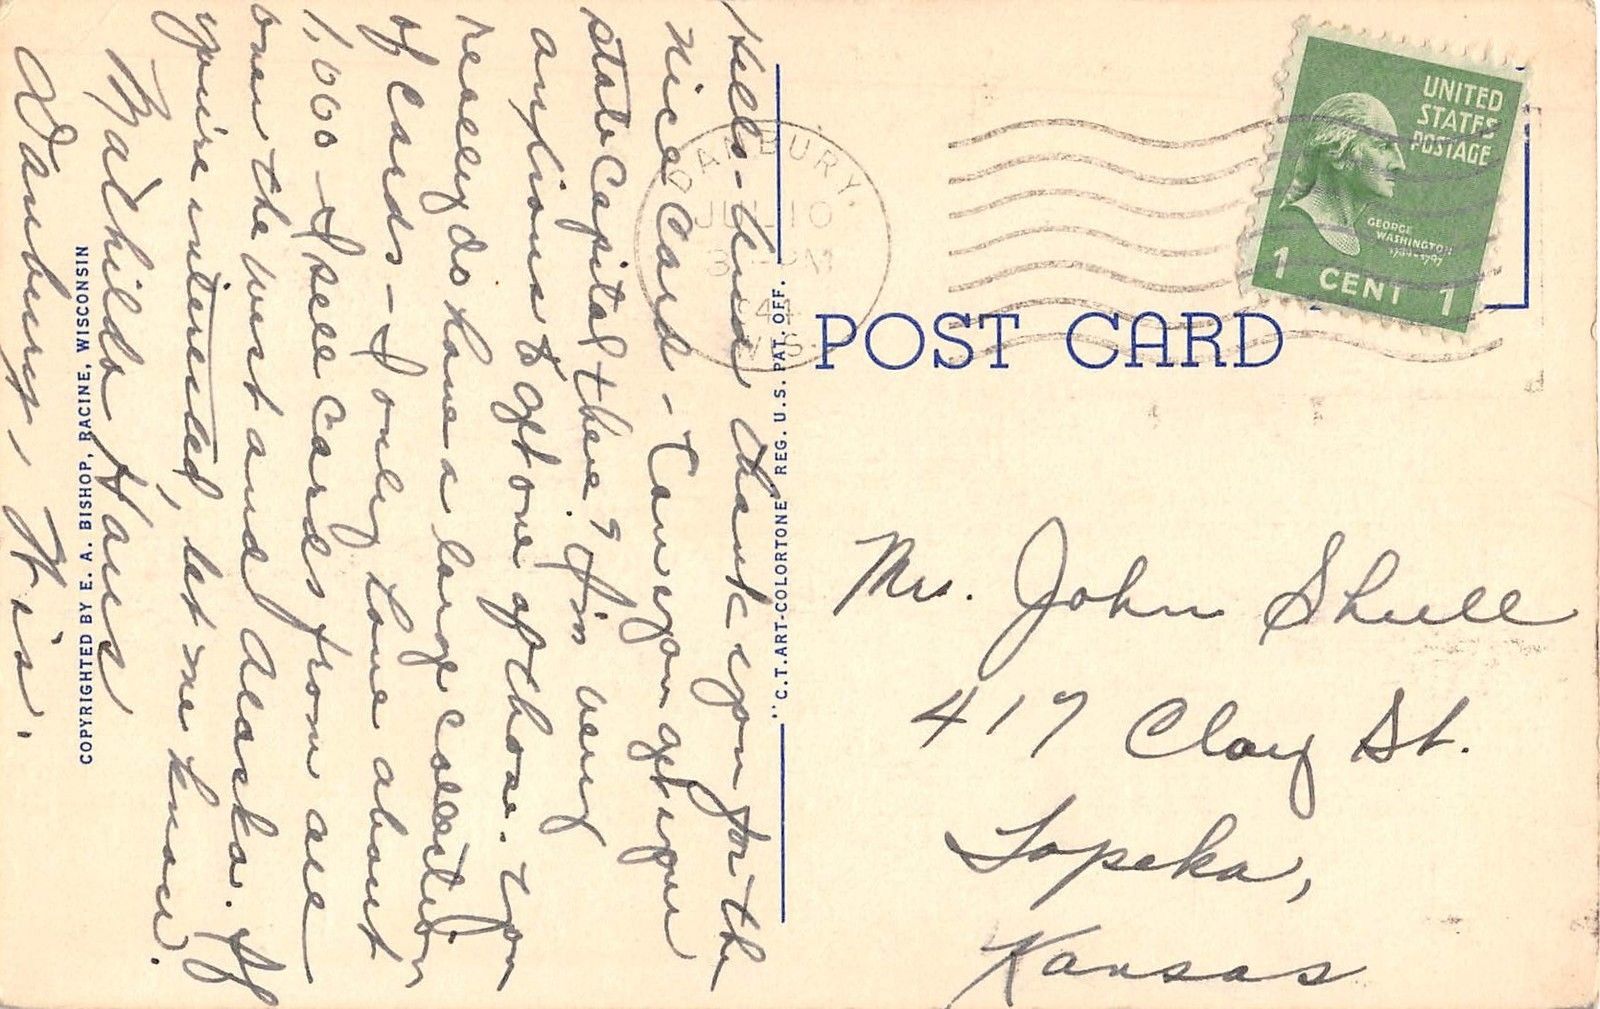 Hello - And thank you for the
nice card - Can you get your
state Capital there? I'm very
anxious to get one of those. You
really do have a large collection
of cards - I only have about
1,000 - I sell cards from all
over the west and Alaska. If
you're interested, let me know.
Mathilda Haus
Danbury, Wis.
COPYRIGHTED BY E. A. BISHOP, RACINE, WISCONSIN
"C.T. ART-COLORTONE REG. U.S. PAT. OFF.
DANBURY.
JUL 10
PM
44
WIS.
UNITED
STATES
POSTAGE
GEORGE
WASHINGTON
1789-1797
1 CENT 1
POST CARD
Mrs. John Shull
417 Clay St.
Topeka,
Kansas